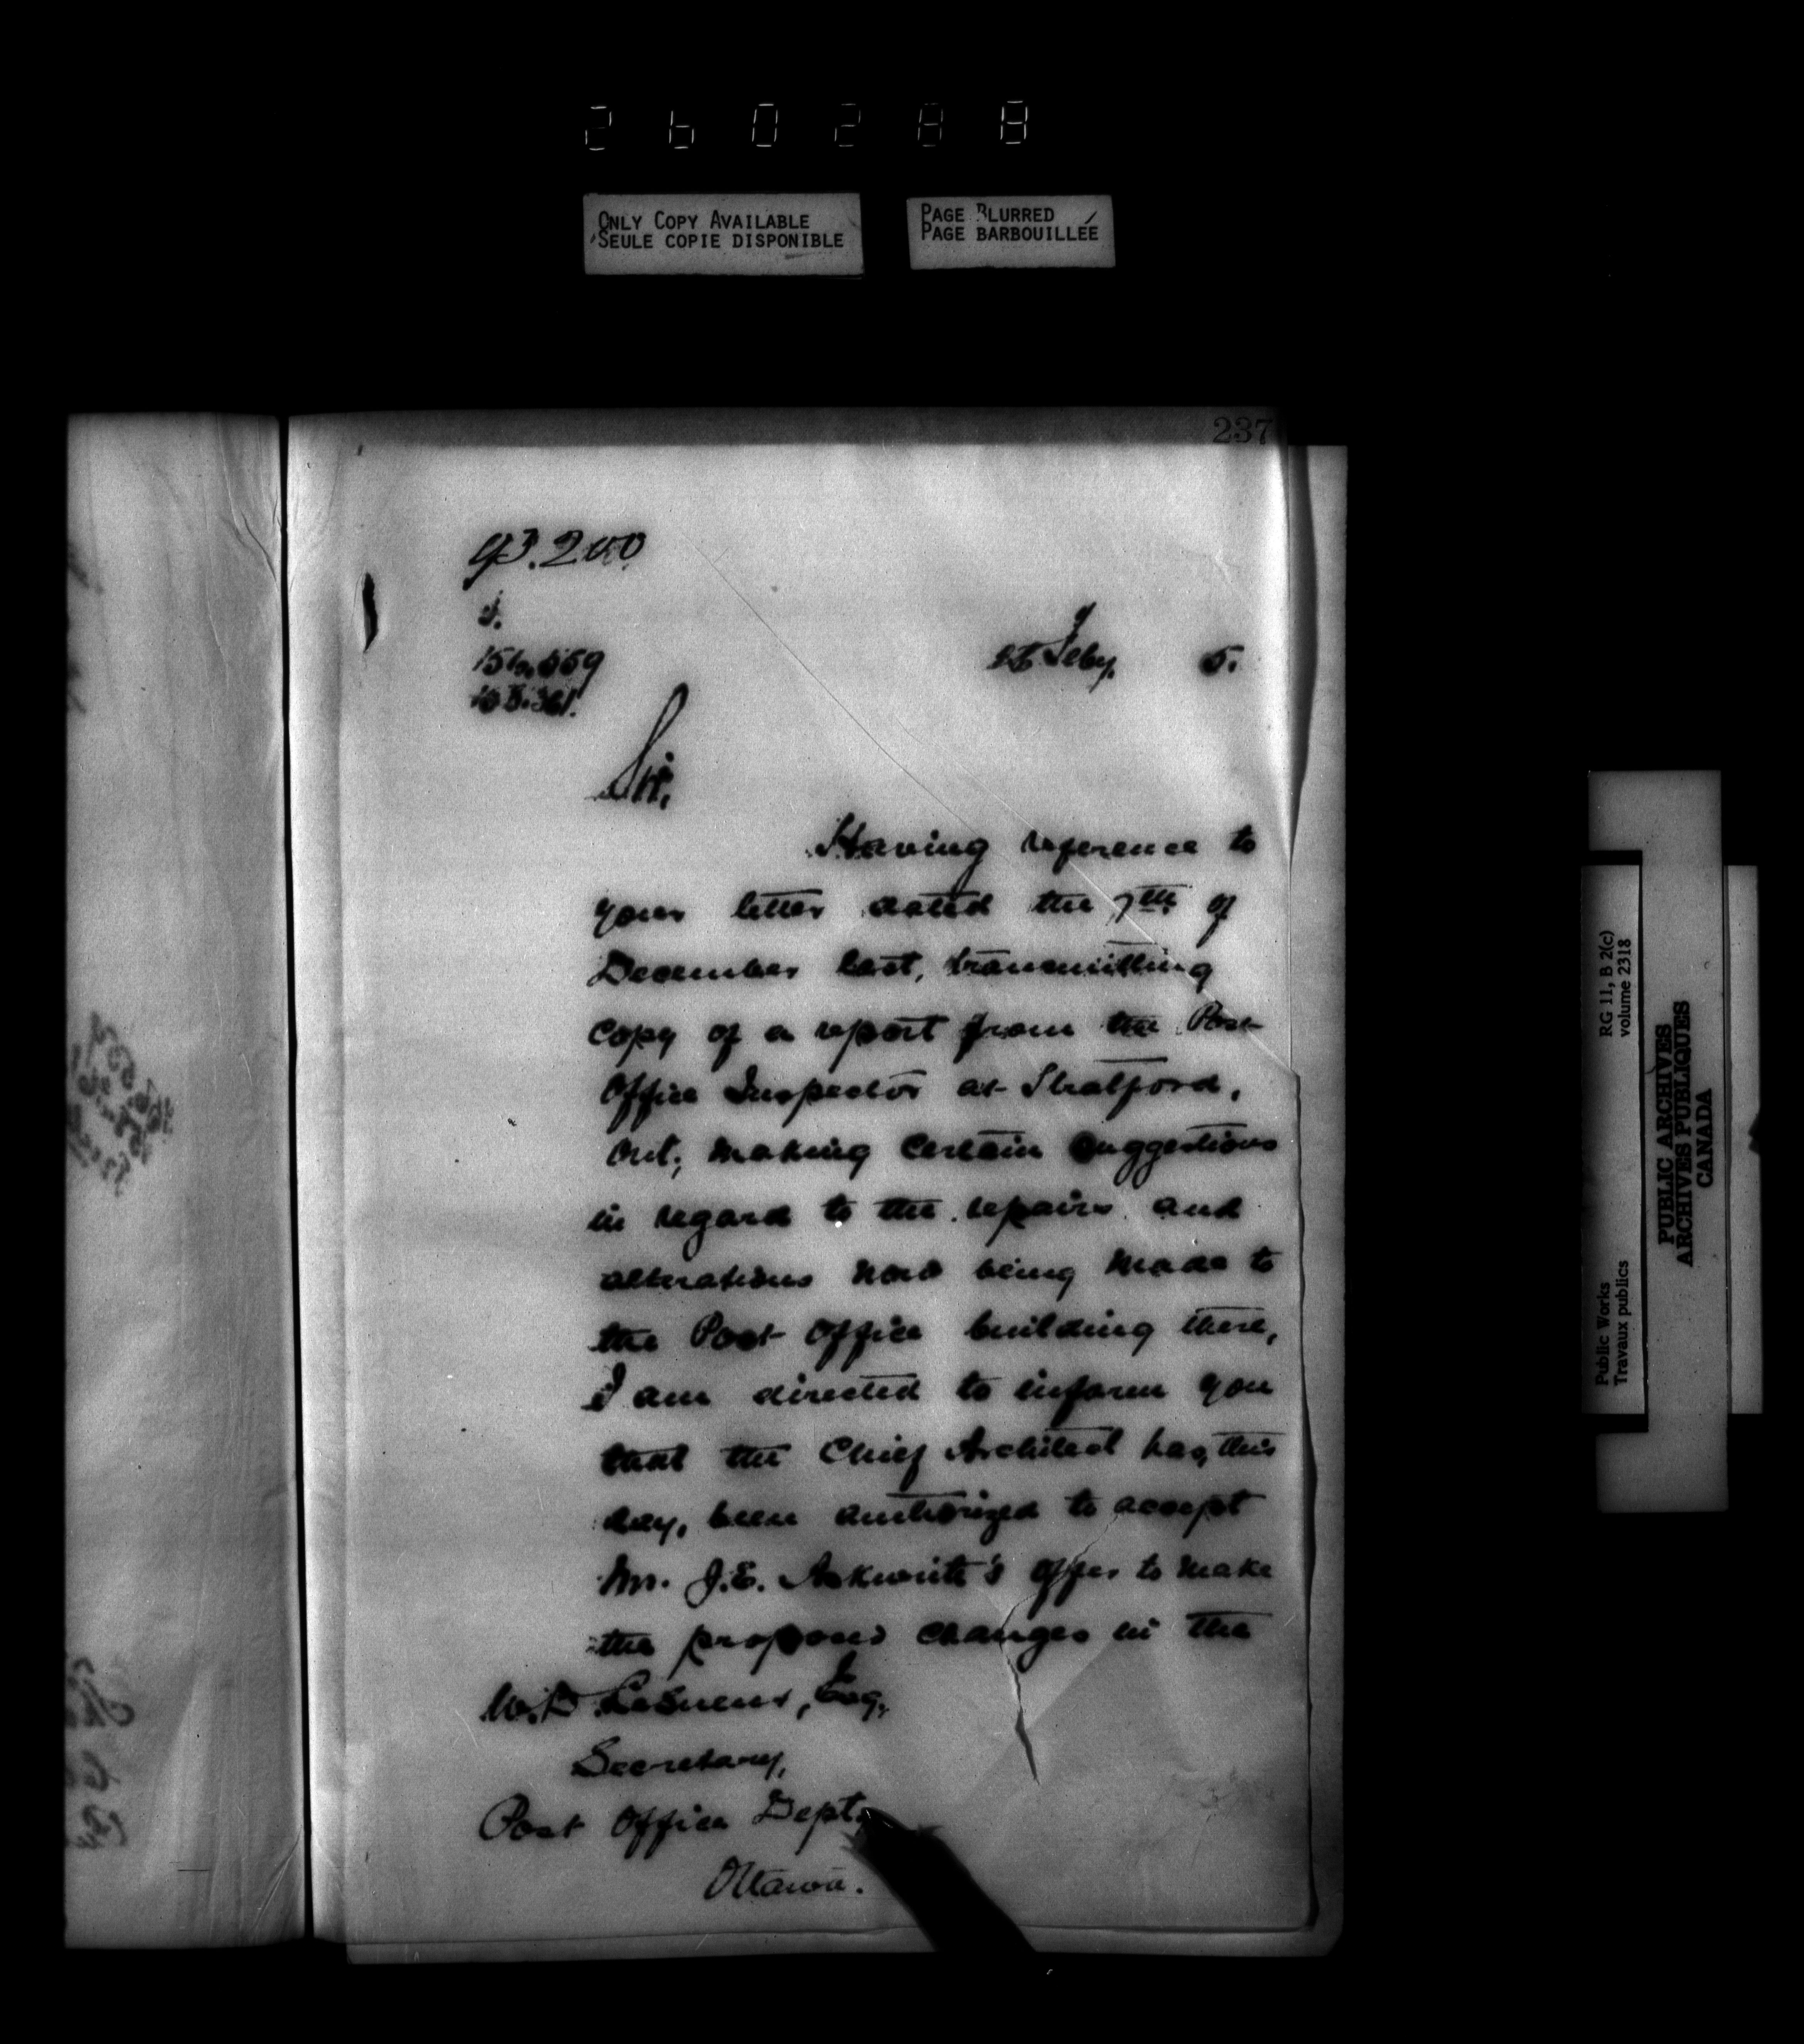 260288
ONLY COPY AVAILABLE
SEULE COPIE DISPONIBLE
PAGE BLURRED
PAGE BARBOUILLÉE
237
93.200
Feby. 5.
Sir,
Having reference to
your letter dated the 7th of
December last, transmitting
copy of a report from the Post
Office Inspector at Stratford,
Ont; making certain suggestions
in regard to the repairs and
alterations now being made to
the Post Office building there,
I am directed to inform you
that the Chief Architect has, this
day, been authorized to accept
Mr. J.E. Askwith's offer to make
the proposed changes in the
W.D. LeSueur, Esq,
Secretary,
Post Office Dept,
Ottawa.
RG 11, B 2(c)
volume 2318
Public Works
Travaux publics
PUBLIC ARCHIVES
ARCHIVES PUBLIQUES
CANADA